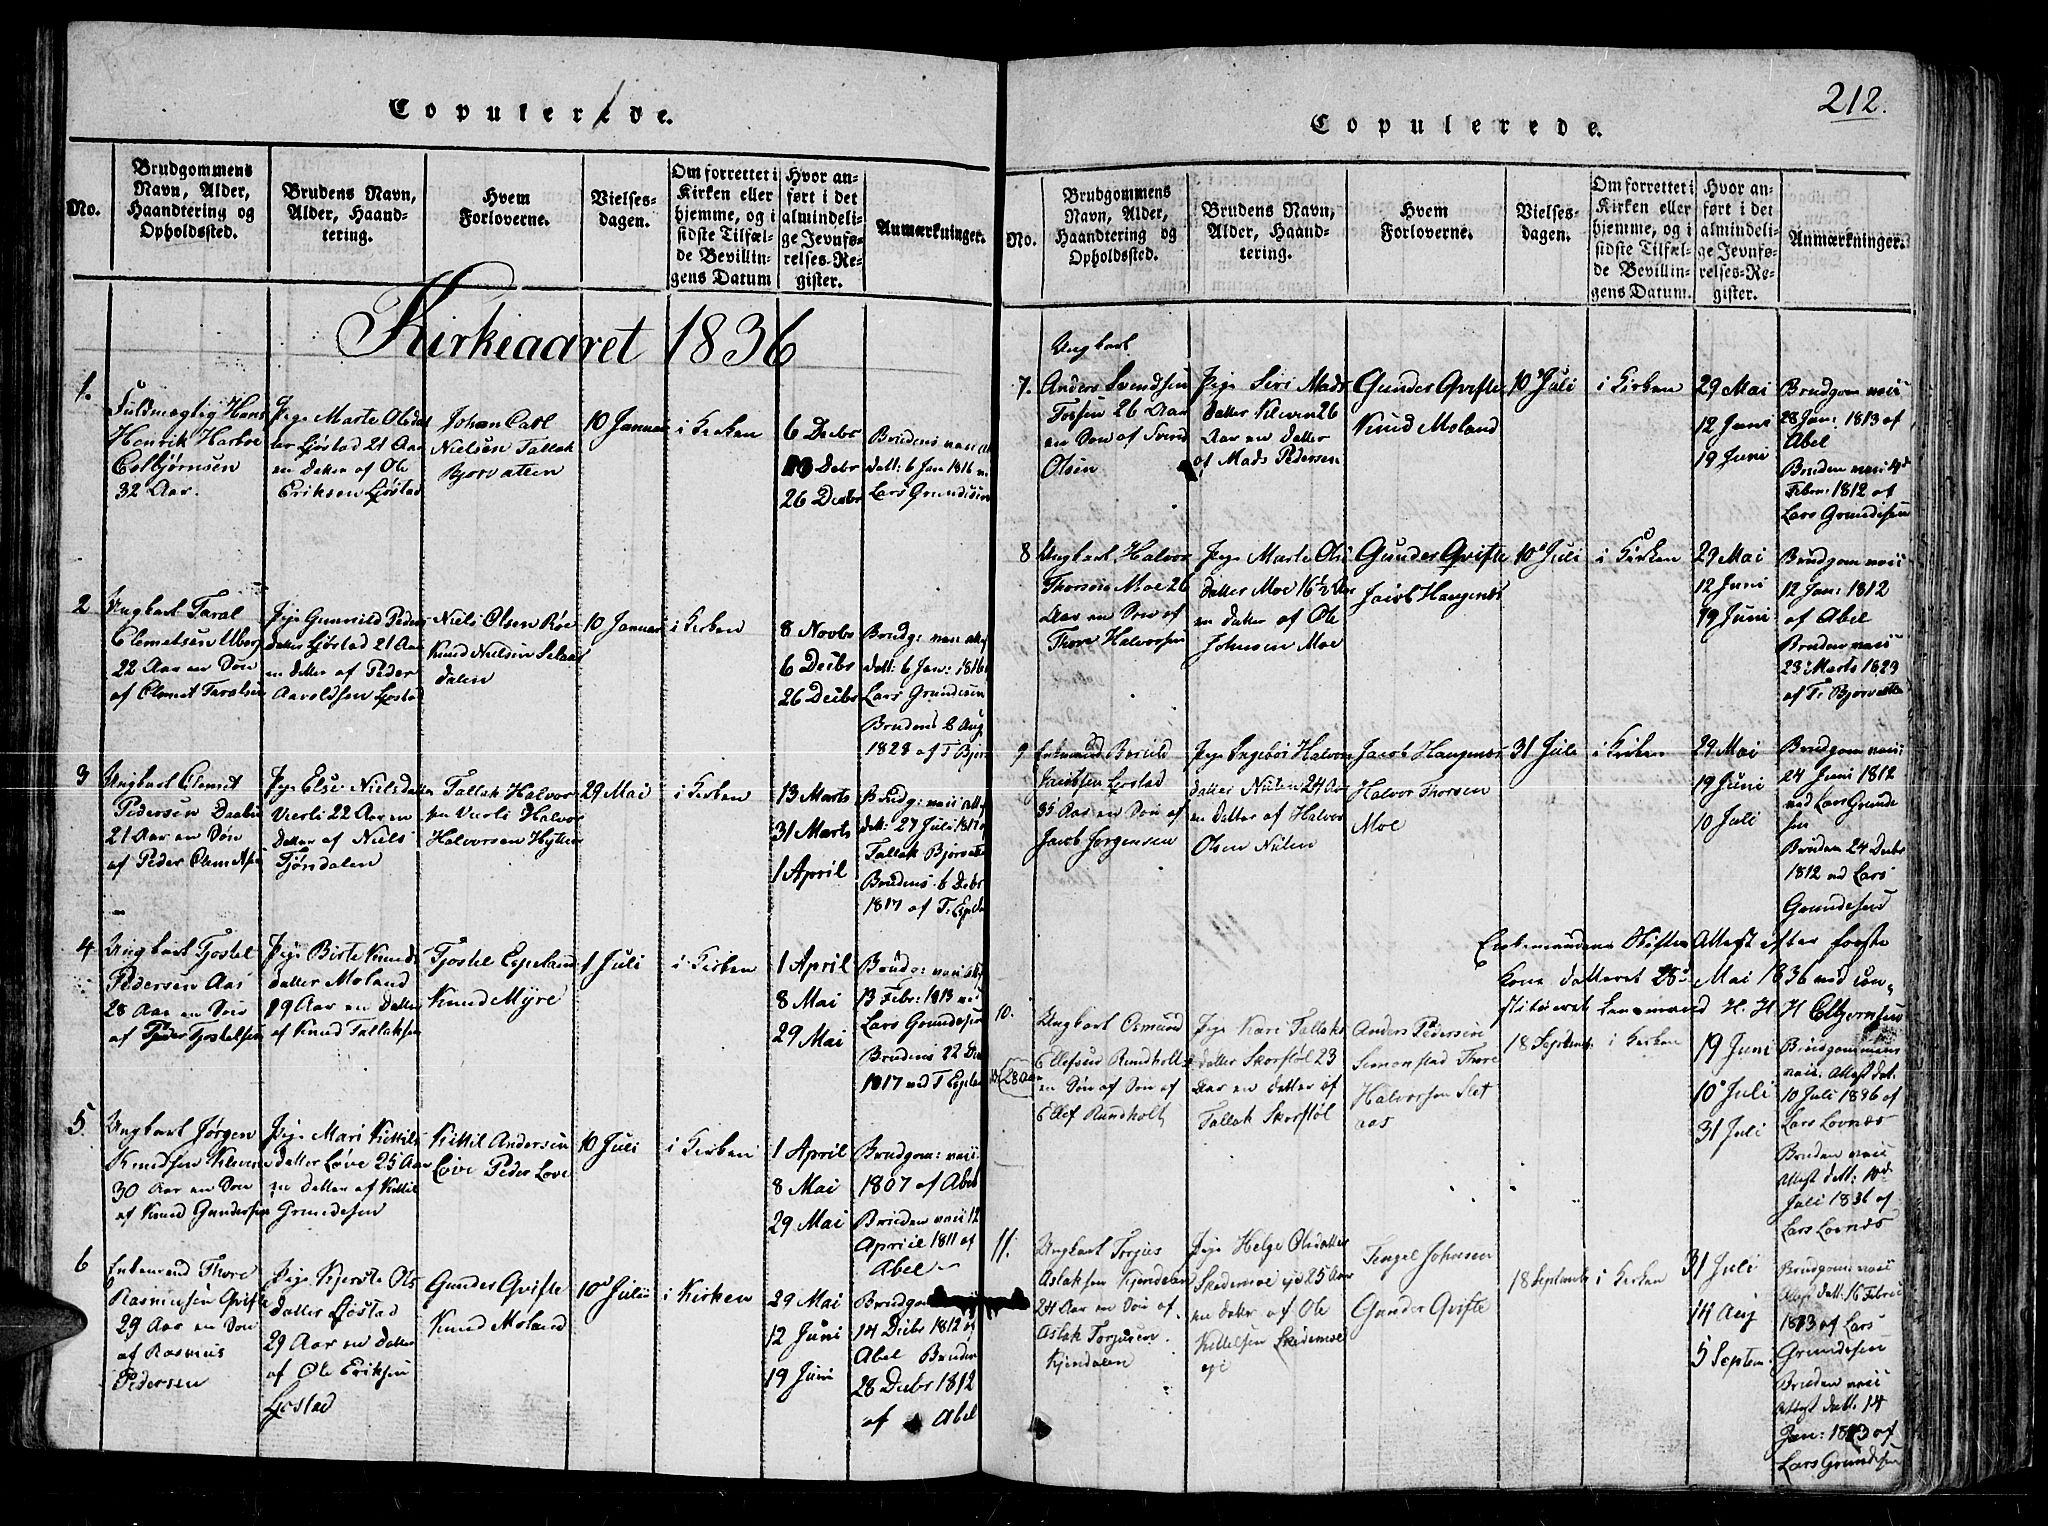 Copulerede.
No.
Brudgommens
Navn, Alder,
Haandtering og
Opholdssted.
Brudens Navn,
Alder, Haand-
tering.
Hvem
Forloverne.
Vielses-
dagen.
Om forrettet i
Kirken eller
hjemme, og i
sidste Tilfæl-
de Bevillin-
gens Datum
Hvor an-
ført i det
almindeli-
ge Jevnfø-
relses-Re-
gister.
Anmærkninger.
Kirkeaaret 1836
1.
Fuldmægtig Hans
Henrik Harboe
Colbjørnsen
32 Aar.
Pige Marte Olsdat
ter Ljøstad 21 Aar
en Datter af Ole
Eriksen Ljøstad
Johan Carl
Nielsen Tallak
Bjorvatten
10 Januar
i Kirken
6 Decbr
Decbr
26 Decbr
Brudens
datt: 6 Jan 1816
Lars Grundesen
2
Ungkarl Taral
Clemetsen
22 Aar en Søn
af Clemet Taralsen
Pige Gunvild Peders
datter Ljøstad 21 Aar
en datter af Peder
Aaroldsen Ljøstad
Niels Olsen Røe
Knud Nielsen
dalen
10 Januar
i Kirken
8 Novbr
6 Decbr
26 Decbr
Brudg: vacc
datt: 6 Jan: 1816
Lars Grundesen
Brudens 6 Aug
1828 af T. Bjor
3
Ungkarl Clemet
Pedersen
21 Aar en Søn
af Peder
Pige Else Nielsdatter
Vierli 22 Aar en
datter af Niels
Tjøndalen
Tallak Halvor
sen Vierli Halvor
Halvorsen Hylten
29 Mai
i Kirken
13 Marts
31 Marts
1 April
Brudg: vacc
datt: 27 Juli 1817
Tallak Bjorvatten
Brudens 6 Decbr
1817 af T. Espeland
4
Ungkarl Tjostel
Pedersen Aas
28 Aar en Søn
af Peder Tjostelsen
Pige Birte Knuds
datter Moland
19 Aar en datter
af Knud Tallaksen
Tjostel Espeland
Knud Myre
1 Juli
i Kirken
1 April
8 Mai
29 Mai
Brudg: vacc
13 Febr: 1813
Lars Grundesen
Brudens 22 Dec
1817 ved T. Espeland
5.
Ungkarl Jørgen
Knudsen Kleven
30 Aar en Søn
af Knud Gundersen
Pige Mari Kittils
datter Løve 25 Aar
en datter af Kittil
Grundesen
Kittil Andersen
Løve Peder Løve
10 Juli
i Kirken
1 April
8 Mai
29 Mai
Brudgom: vacc
1807 af Abel
Bruden vacc 12
April 1811 af
Abel
6
Enkemand Thore
Rasmusen Qvifte
29 Aar en Søn
af Rasmus
Pedersen
Pige Kjerste Ols
datter Ljøstad
29 Aar en datter
af Ole Eriksen
Ljøstad
Gunder Qvifte
Knud Moland
10 Juli
i Kirken
29 Mai
12 Juni
19 Juni
Brudgom
14 Decbr 1812
Abel Bruden
28 Decbr 1812
af Abel
212.
Copulerede.
No.
Brudgommens
Navn, Alder,
Haandtering og
Opholdssted.
Brudens Navn,
Alder, Haand-
tering.
Hvem
Forloverne.
Vielses-
dagen.
Om forrettet i
Kirken eller
hjemme, og i
sidste Tilfæl-
de Bevillin-
gens Datum.
Hvor an-
ført i det
almindeli-
ge Jevnfø-
relses-Re-
gister.
Anmærkninger.
7.
Ungkarl
Anders Svendsen
26 Aar
en Søn af Svend
Olsen
Pige Siri Mads
datter Kleven 26
Aar en datter
af Mads Pedersen
Gunder Qvifte
Knud Moland
10 Juli
i Kirken
29 Mai
12 Juni
19 Juni
Brudgom vacc
28 Jan: 1813 af
Abel
Bruden vacc
Febr: 1812 af
Lars Grundesen
8
Ungkarl Halvor
Thorsen Moe 26
Aar en Søn af
Thore Halvorsen
Pige Marte Ols
datter Moe 16½ Aar
en datter af Ole
Johnsen Moe
Gunder Qvifte
Jacob Haugenæs
10 Juli
i Kirken
29 Mai
12 Juni
19 Juni
Brudgom vacc
12 Jan: 1812
af Abel
Bruden vacc
23 Marts 1823
af T. Bjorvatten
9
Enkemand
Jacobsen Ljostad
35 Aar en Søn af
Jacob Jørgensen
Pige Ingebor Halvors
datter Nilsen 24 Aar
en datter af Halvor
Olsen
Jacob Haugenæs
Halvor Thorsen
Moe
31 Juli
i Kirken
29 Mai
19 Juni
10 Juli
Brudgom vacc:
24 Juni 1812
ved Lars Grunde
sen
Bruden 24 Decbr
1812 ved Lars
Grundesen
Enkemandens Skifte Attest efter første
Kone datteret 25 Mai 1836 ved con-
stitueret Lensmand H. H Colbjørnsen
10.
Ungkarl Osmund
Ellefsen Rundholt
28 Aar
en Søn af Søn af
Ellef Rundholt
Pige Kari Tallaks
datter Skorstøl 23
Aar en datter af
Tallak Skorstøl
Anders Pedersen
Simonstad Thore
Halvorsen Slet
aas
18 Septembr
i Kirken
19 Juni
10 Juli
31 Juli
Brudgommens
vacc: Attest dat.
10 Juli 1836 af
Lars Lovnæs
Bruden vacc
Attest datt: 10
Juli 1836 af
Lars Lovnæs
11.
Ungkarl Torjus
Aslaksen Kjendalen
24 Aar en Søn af
Aslak Torjusen
Kjendalen
Pige Helge Olsdatter
Skedemoe 25 Aar
en datter af Ole
Kittelsen Skedemo
Tengel Johnsen
Gunder Qvifte
18 Septembr
i Kirken
31 Juli
14 Aug
5 Septem.
Brudgom vacc
Attest datt: 16 Febru
1813 af Lars
Grundesen
Bruden vacc
Attest datt: 14
Jan: 1813 af
Lars Grundesen